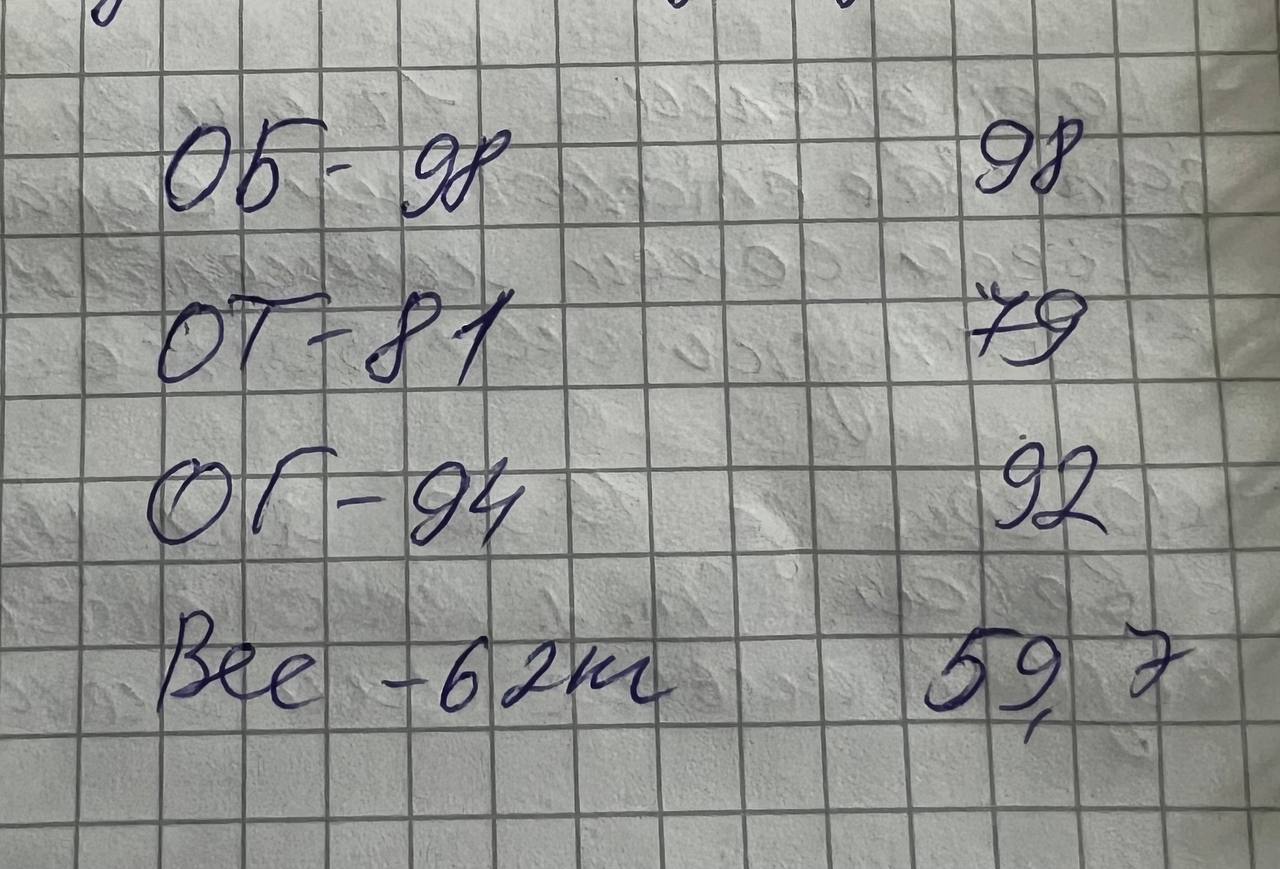 ОБ - 98 98
ОТ - 81 79
ОГ - 94 92
Вес - 62кг 59,7